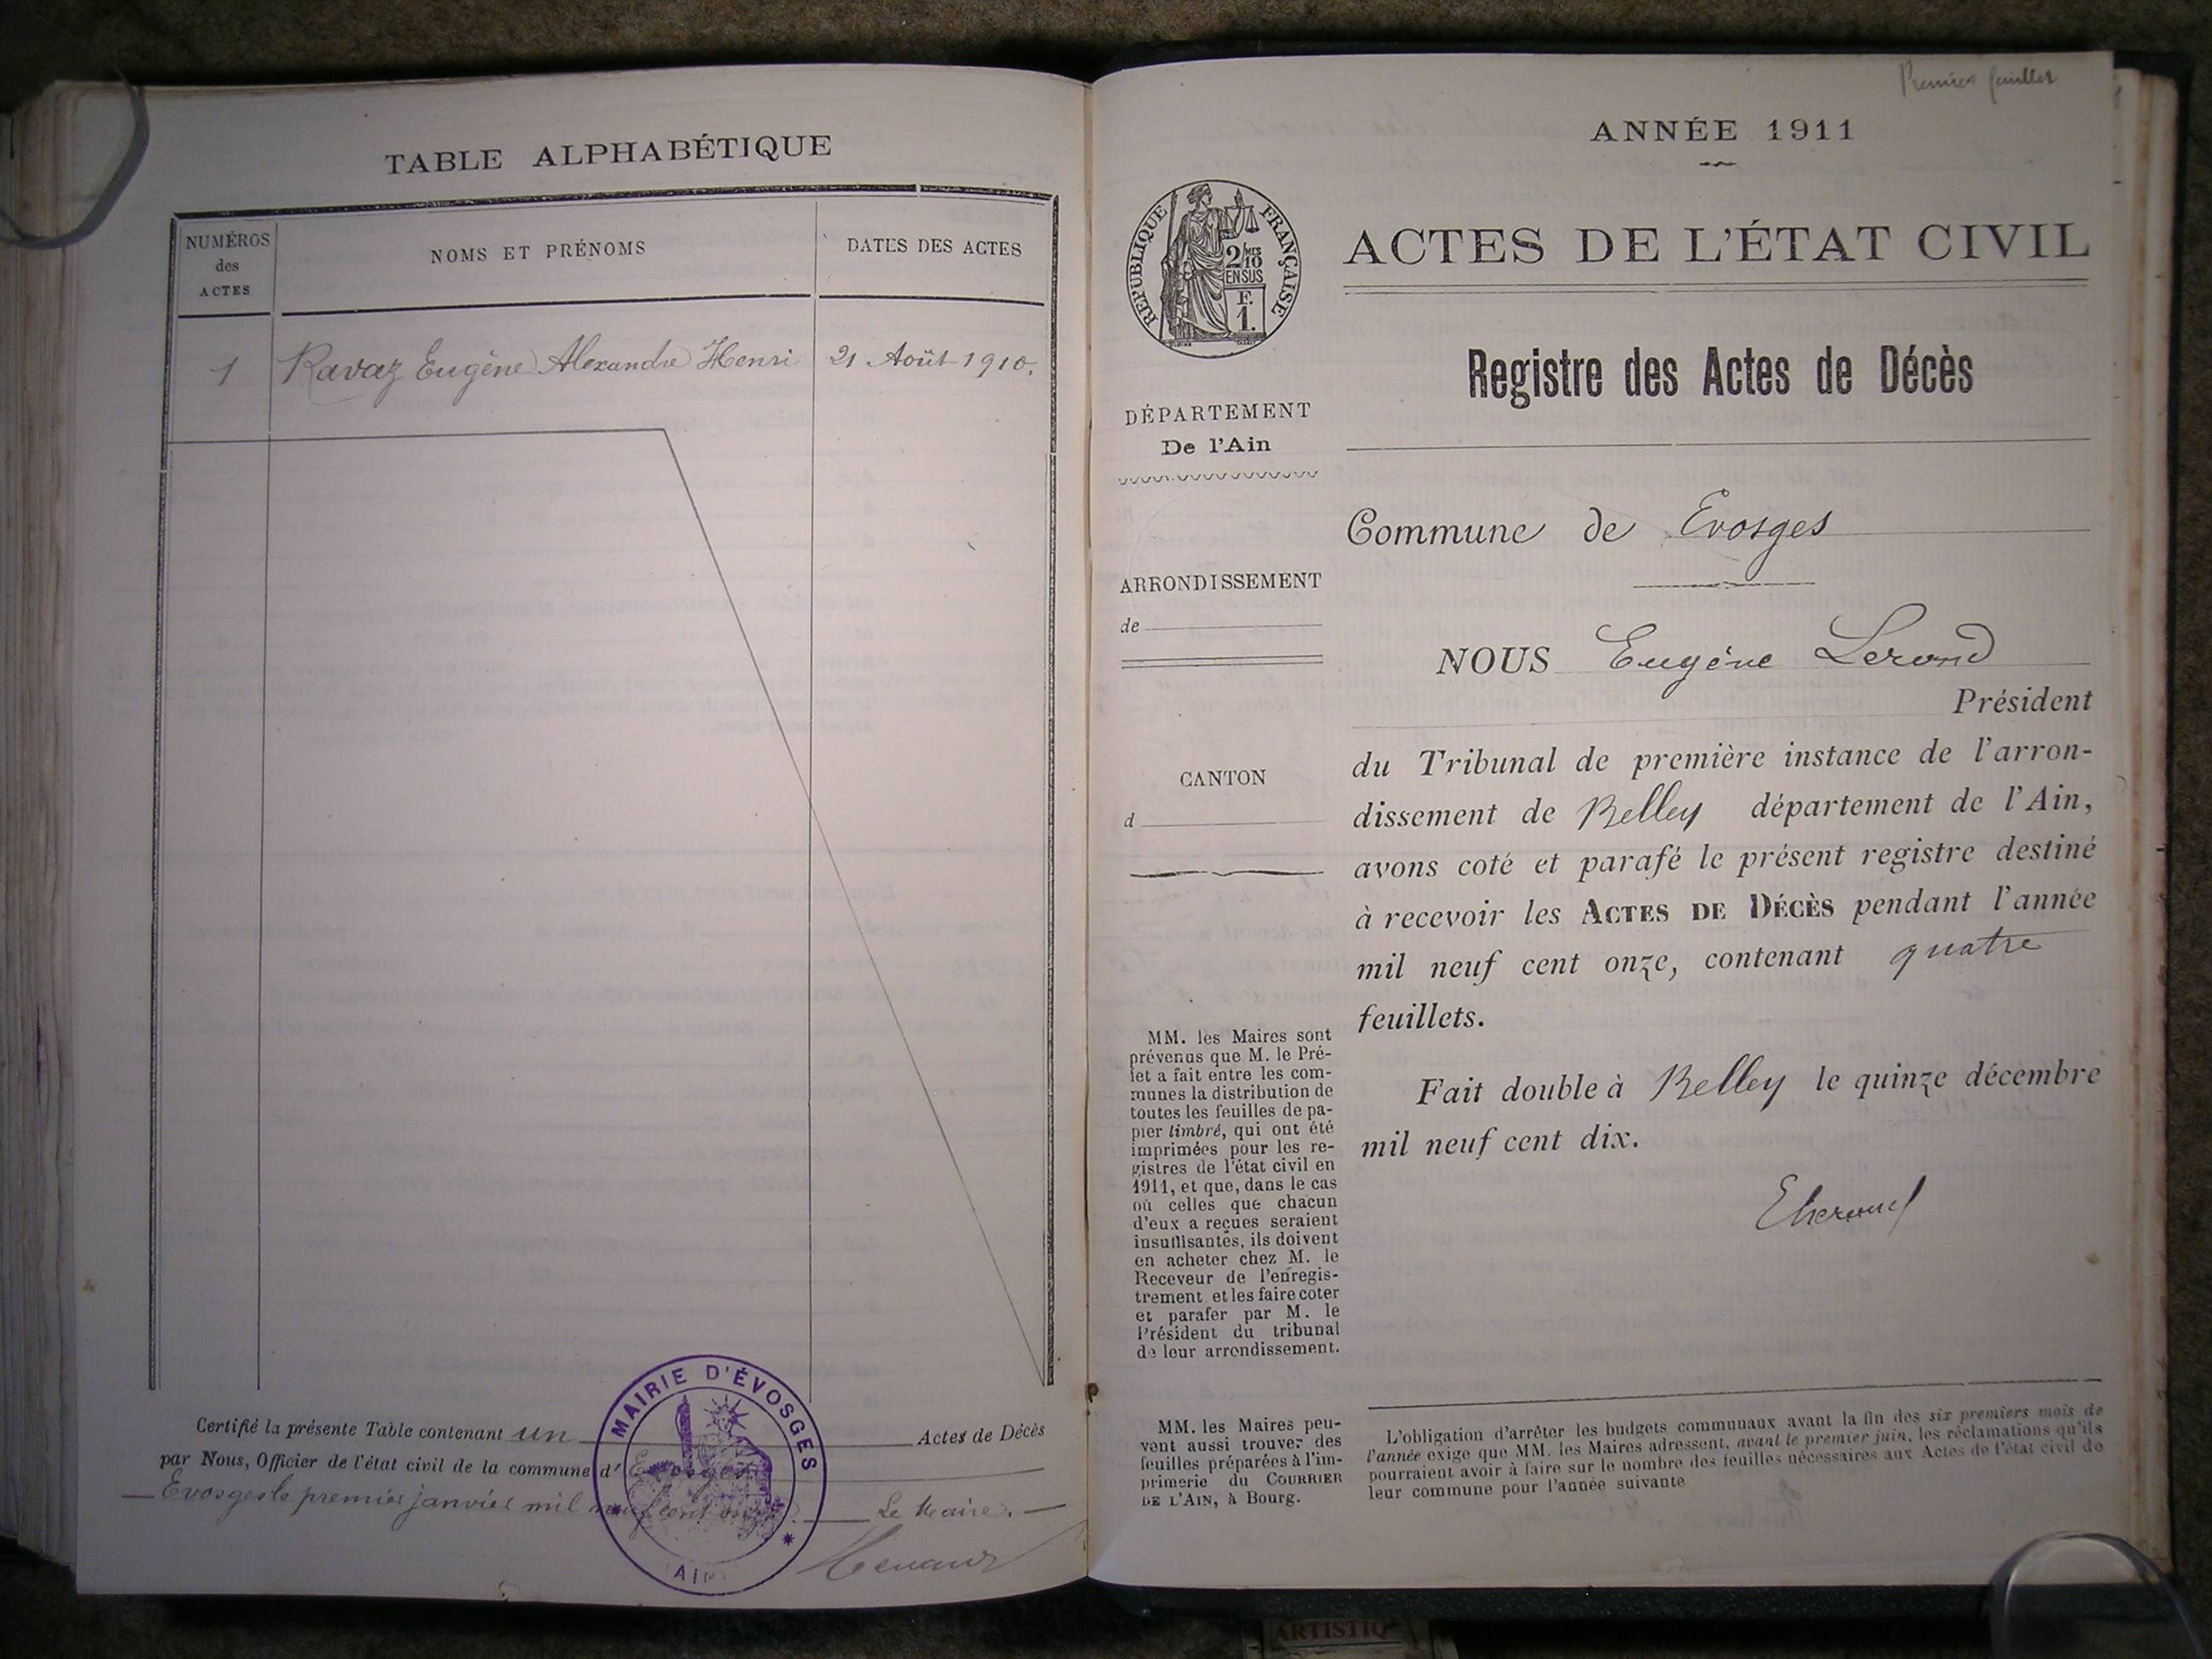 TABLE ALPHABÉTIQUE
NUMÉROS
des
ACTES
NOMS ET PRÉNOMS
DATES DES ACTES
1 Ravaz Eugène Alexandre Henri 21 Août 1910.
Certifié la présente Table contenant un Actes de Décès
par Nous, Officier de l'état civil de la commune d' Evosges
Evosges le premier janvier mil neuf cent onze. Le Maire.
MAIRIE D'ÉVOSGES
AIN
Premier feuillet
ANNÉE 1911
RÉPUBLIQUE FRANÇAISE
2/10 MES
EN SUS
F.
1.
ACTES DE L'ÉTAT CIVIL
Registre des Actes de Décès
DÉPARTEMENT
De l'Ain
ARRONDISSEMENT
de
CANTON
d
Commune de Evosges
NOUS Eugène
Président
du Tribunal de première instance de l'arron-
dissement de Belley département de l'Ain,
avons coté et parafé le présent registre destiné
à recevoir les ACTES DE DÉCÈS pendant l'année
mil neuf cent onze, contenant quatre
feuillets.
Fait double à Belley le quinze décembre
mil neuf cent dix.
MM. les Maires sont
prévenus que M. le Pré-
fet a fait entre les com-
munes la distribution de
toutes les feuilles de pa-
pier timbré, qui ont été
imprimées pour les re-
gistres de l'état civil en
1911, et que, dans le cas
où celles que chacun
d'eux a reçues seraient
insuffisantes, ils doivent
en acheter chez M. le
Receveur de l'enregis-
trement et les faire coter
et parafer par M. le
Président du tribunal
de leur arrondissement.
MM. les Maires peu-
vent aussi trouver des
feuilles préparées à l'im-
primerie du COURRIER
DE L'AIN, à Bourg.
L'obligation d'arrêter les budgets communaux avant la fin des six premiers mois de
l'année exige que MM. les Maires adressent, avant le premier juin, les réclamations qu'ils
pourraient avoir à faire sur le nombre des feuilles nécessaires aux Actes de l'état civil de
leur commune pour l'année suivante
ARTISTIQ